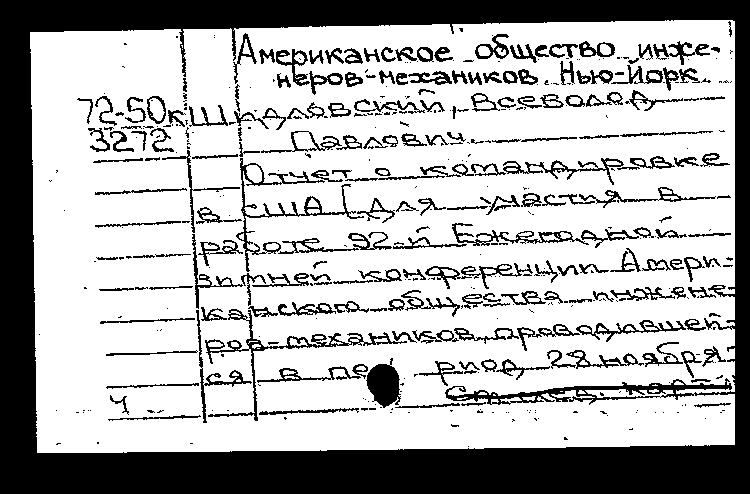 Американское общество инже-
неров-механиков. Нью-Йорк.
72-50к Шидловский, Всеволод
3272 Павлович.
Отчет о командировке
в США [для участия в
работе 92-й Ежегодной
зимней конференции Амери-
канского общества инжене-
ров-механиков, проводившей-
ся в пе риод 28 ноября-
См. след. карт
Ч